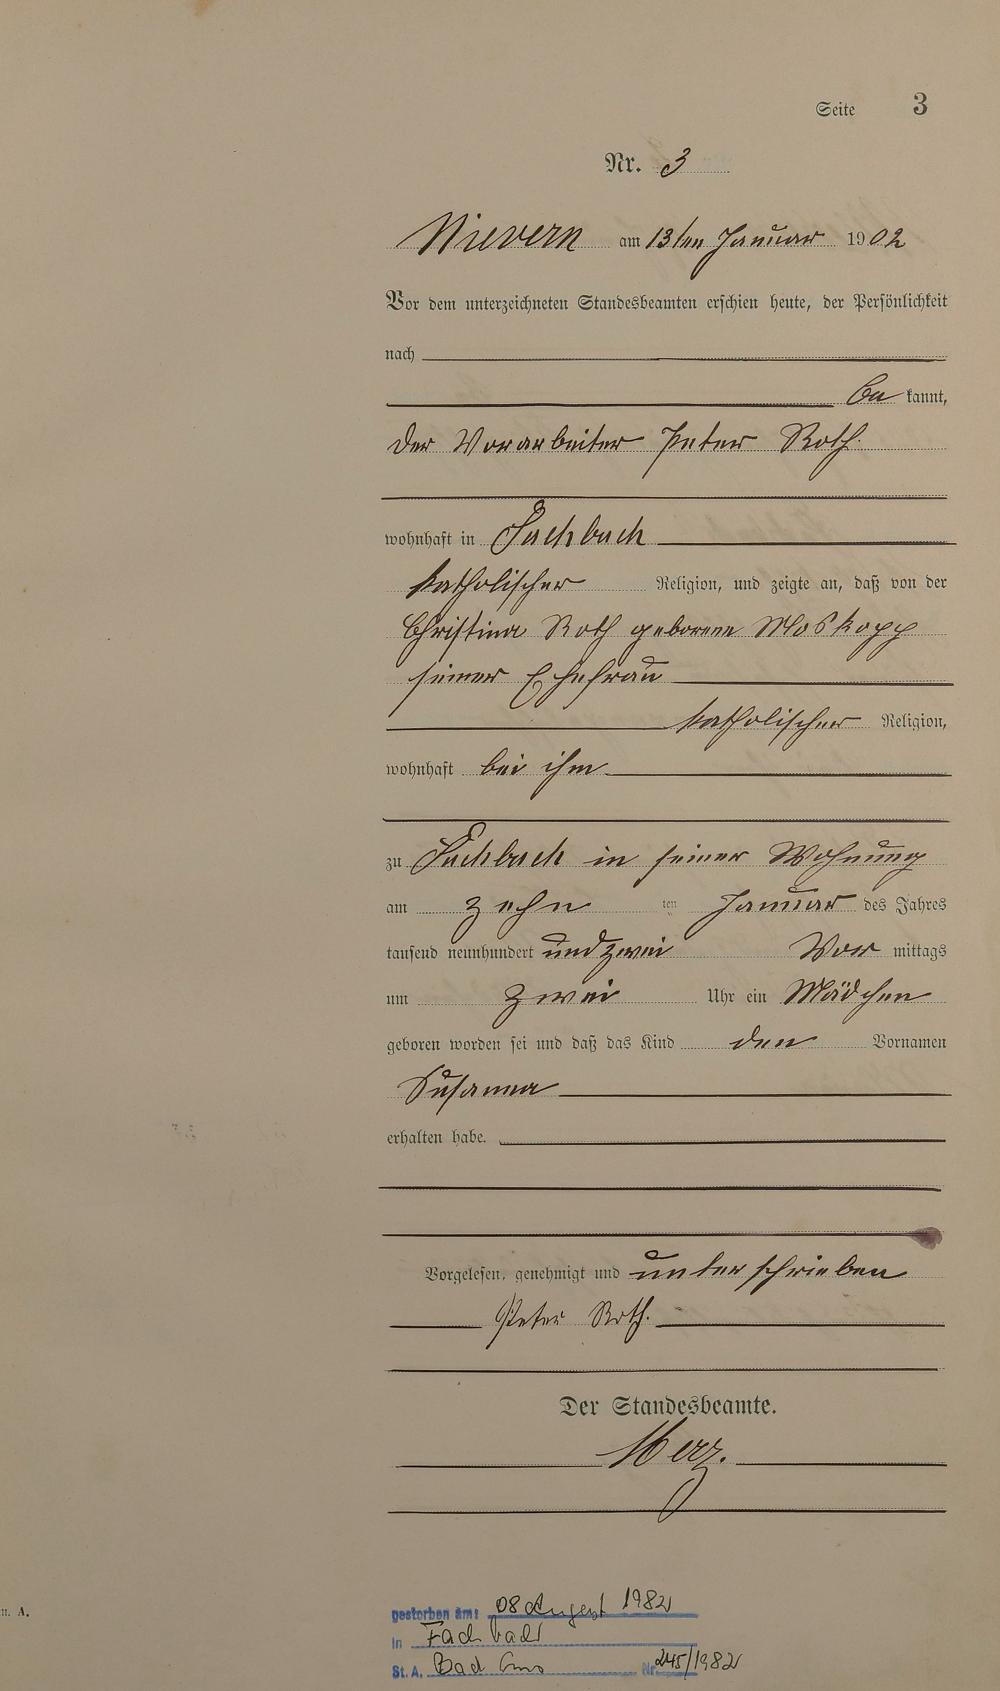 Seite 3
Nr. 3
Nievern am 13ten Januar 1902
Vor dem unterzeichneten Standesbeamten erschien heute, der Persönlichkeit
nach
be kannt,
der Vorarbeiter Peter Roth
wohnhaft in Fachbach
katholischer Religion, und zeigte an, daß von der
Christina Roth geborene Moskopp
seiner Ehefrau
katholischer Religion,
wohnhaft bei ihm
zu Fachbach in seiner Wohnung
am zehn ten Januar des Jahres
tausend neunhundert und zwei Vor mittags
um zwei Uhr ein Mädchen
geboren worden sei und daß das Kind den Vornamen
Susanna
erhalten habe.
Vorgelesen, genehmigt und unterschrieben
Peter Roth.
Der Standesbeamte.
Merz.
n. A.
gestorben am: 08 August 1982
in Fachbach
St. A. Bad Ems Nr. 245/1982